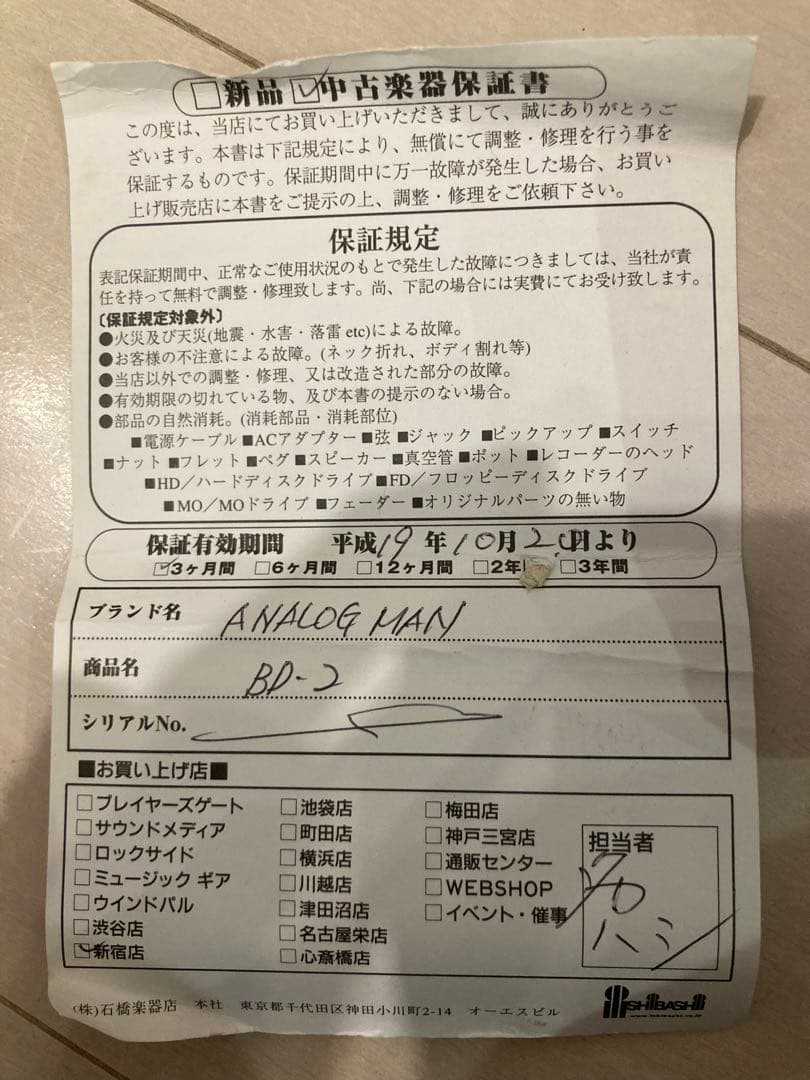 □新品 ☑中古楽器保証書
この度は、当店にてお買い上げいただきまして、誠にありがとうご
ざいます。本書は下記規定により、無償にて調整・修理を行う事を
保証するものです。保証期間中に万一故障が発生した場合、お買い
上げ販売店に本書をご提示の上、調整・修理をご依頼下さい。
保証規定
表記保証期間中、正常なご使用状況のもとで発生した故障につきましては、当社が責
任を持って無料で調整・修理致します。尚、下記の場合には実費にてお受け致します。
〔保証規定対象外〕
●火災及び天災(地震・水害・落雷 etc)による故障。
●お客様の不注意による故障。(ネック折れ、ボディ割れ等)
●当店以外での調整・修理、又は改造された部分の故障。
●有効期限の切れている物、及び本書の提示のない場合。
●部品の自然消耗。(消耗部品・消耗部位)
■電源ケーブル ■ACアダプター ■弦 ■ジャック ■ピックアップ ■スイッチ
■ナット ■フレット ■ペグ ■スピーカー ■真空管 ■ポット ■レコーダーのヘッド
■HD／ハードディスクドライブ ■FD／フロッピーディスクドライブ
■MO／MOドライブ ■フェーダー ■オリジナルパーツの無い物
保証有効期間 平成19年10月20日より
☑3ヶ月間 □6ヶ月間 □12ヶ月間 □2年 □3年間
ブランド名 ANALOG MAN
商品名 BD-2
シリアルNo.
■お買い上げ店■
□プレイヤーズゲート □池袋店 □梅田店
□サウンドメディア □町田店 □神戸三宮店
□ロックサイド □横浜店 □通販センター
□ミュージック ギア □川越店 □WEBSHOP
□ウインドパル □津田沼店 □イベント・催事
□渋谷店 □名古屋栄店
☑新宿店 □心斎橋店
担当者
ハシ
(株)石橋楽器店 本社 東京都千代田区神田小川町2-14 オーエスビル
ISHIBASHI
www.ishibashi.co.jp